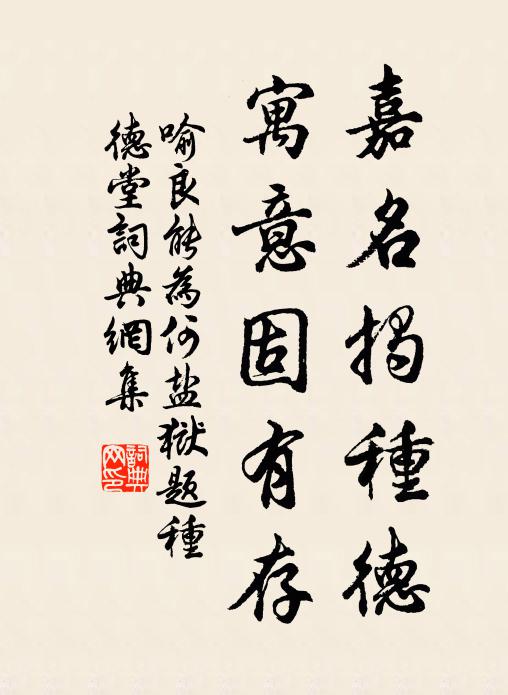 嘉名揭種德
寓意固有存
喻良能為何盐獄题種
德堂詞典網集
詞典网印